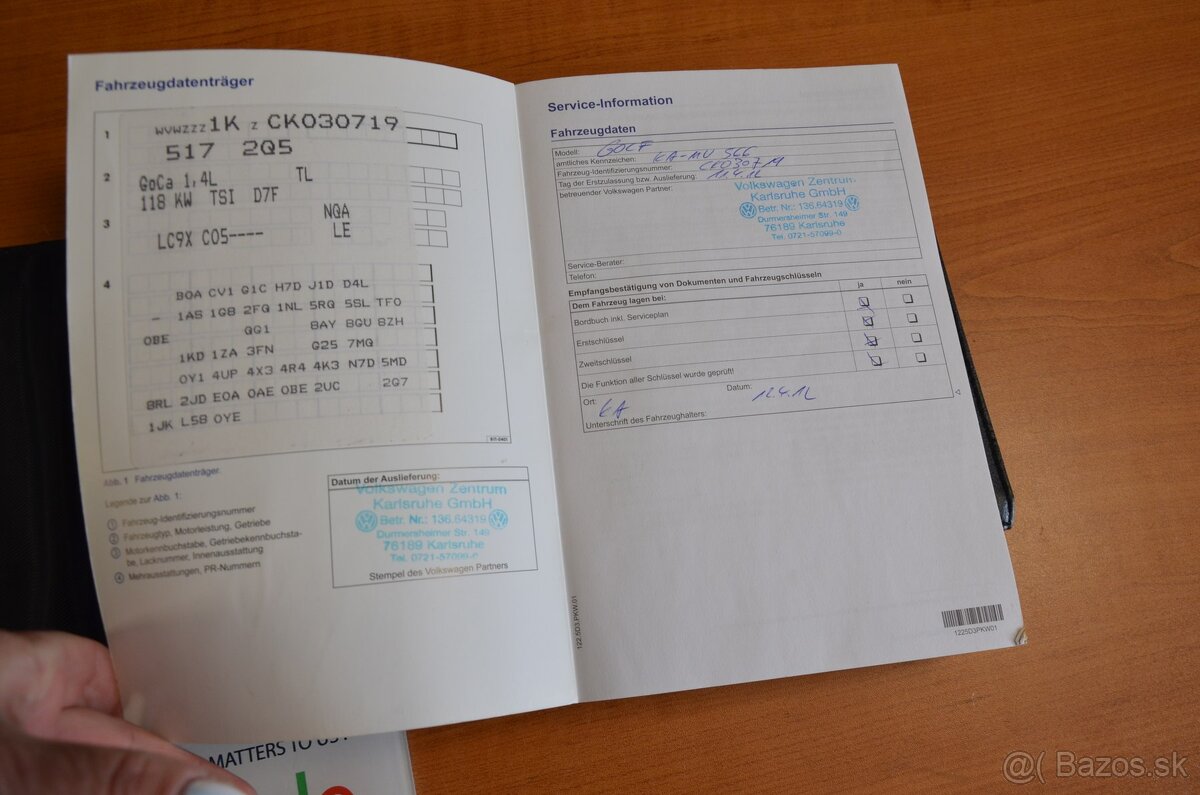 Fahrzeugdatenträger
1
WVWZZZ1K Z CK030719
517 2Q5
2
GoCa 1,4L TL
118 KW TSI D7F
3
NQA
LC9X C05---- LE
4
BOA CV1 G1C H7D J1D D4L
– 1AS 1G8 2FQ 1NL 5RQ 5SL TFO
OBE GG1 8AY 8GU 8ZH
1KD 1ZA 3FN G25 7MQ
OY1 4UP 4X3 4R4 4K3 N7D 5MD
8RL 2JD EOA OAE OBE 2UC 2G7
1JK L58 OYE
Abb. 1 Fahrzeugdatenträger.
Legende zur Abb. 1:
1 Fahrzeug-Identifizierungsnummer
2 Fahrzeugtyp, Motorleistung, Getriebe
3 Motorkennbuchstabe, Getriebekennbuchsta-
be, Lacknummer, Innenausstattung
4 Mehrausstattungen, PR-Nummern
Datum der Auslieferung:
Volkswagen Zentrum
Karlsruhe GmbH
Betr. Nr.: 136.64319
Durmersheimer Str. 149
76189 Karlsruhe
Tel. 0721-57099-0
Stempel des Volkswagen Partners
122.5D3.PKW.01
Service-Information
Fahrzeugdaten
Modell: GOLF
amtliches Kennzeichen: KA-MU 566
Fahrzeug-Identifizierungsnummer:
Tag der Erstzulassung bzw. Auslieferung: 11.4.12
betreuender Volkswagen Partner:
Volkswagen Zentrum
Karlsruhe GmbH
Betr. Nr.: 136.64319
Durmersheimer Str. 149
76189 Karlsruhe
Tel. 0721-57099-0
Service-Berater:
Telefon:
Empfangsbestätigung von Dokumenten und Fahrzeugschlüsseln
Dem Fahrzeug lagen bei: ja nein
Bordbuch inkl. Serviceplan
Erstschlüssel
Zweitschlüssel
Die Funktion aller Schlüssel wurde geprüft!
Ort: KA Datum: 12.4.12
Unterschrift des Fahrzeughalters:
1225D3PKW01
MATTERS TO US
@( Bazos.sk